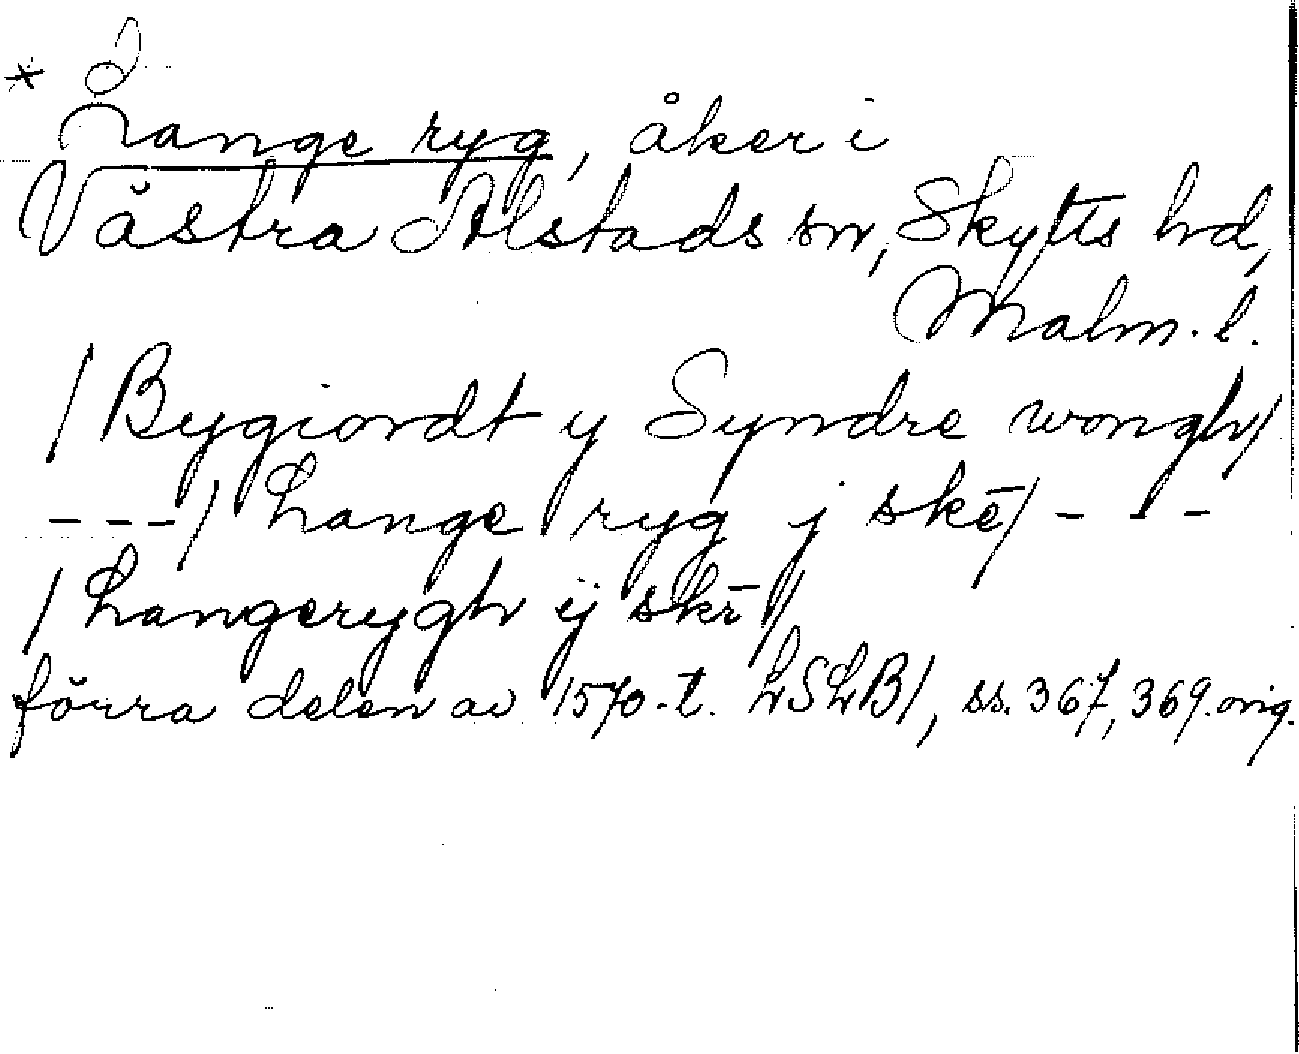 * Lange ryg, åker i
Västra Alstads sn, Skytts hd,
Malm. l.
/Bygiordt y Syndre wongh/
---/ Lange ryg j skē/ - - -
/Langerygh ij skr̄/
förra delen av 1570-t. LSLB1, ss. 367, 369. orig.